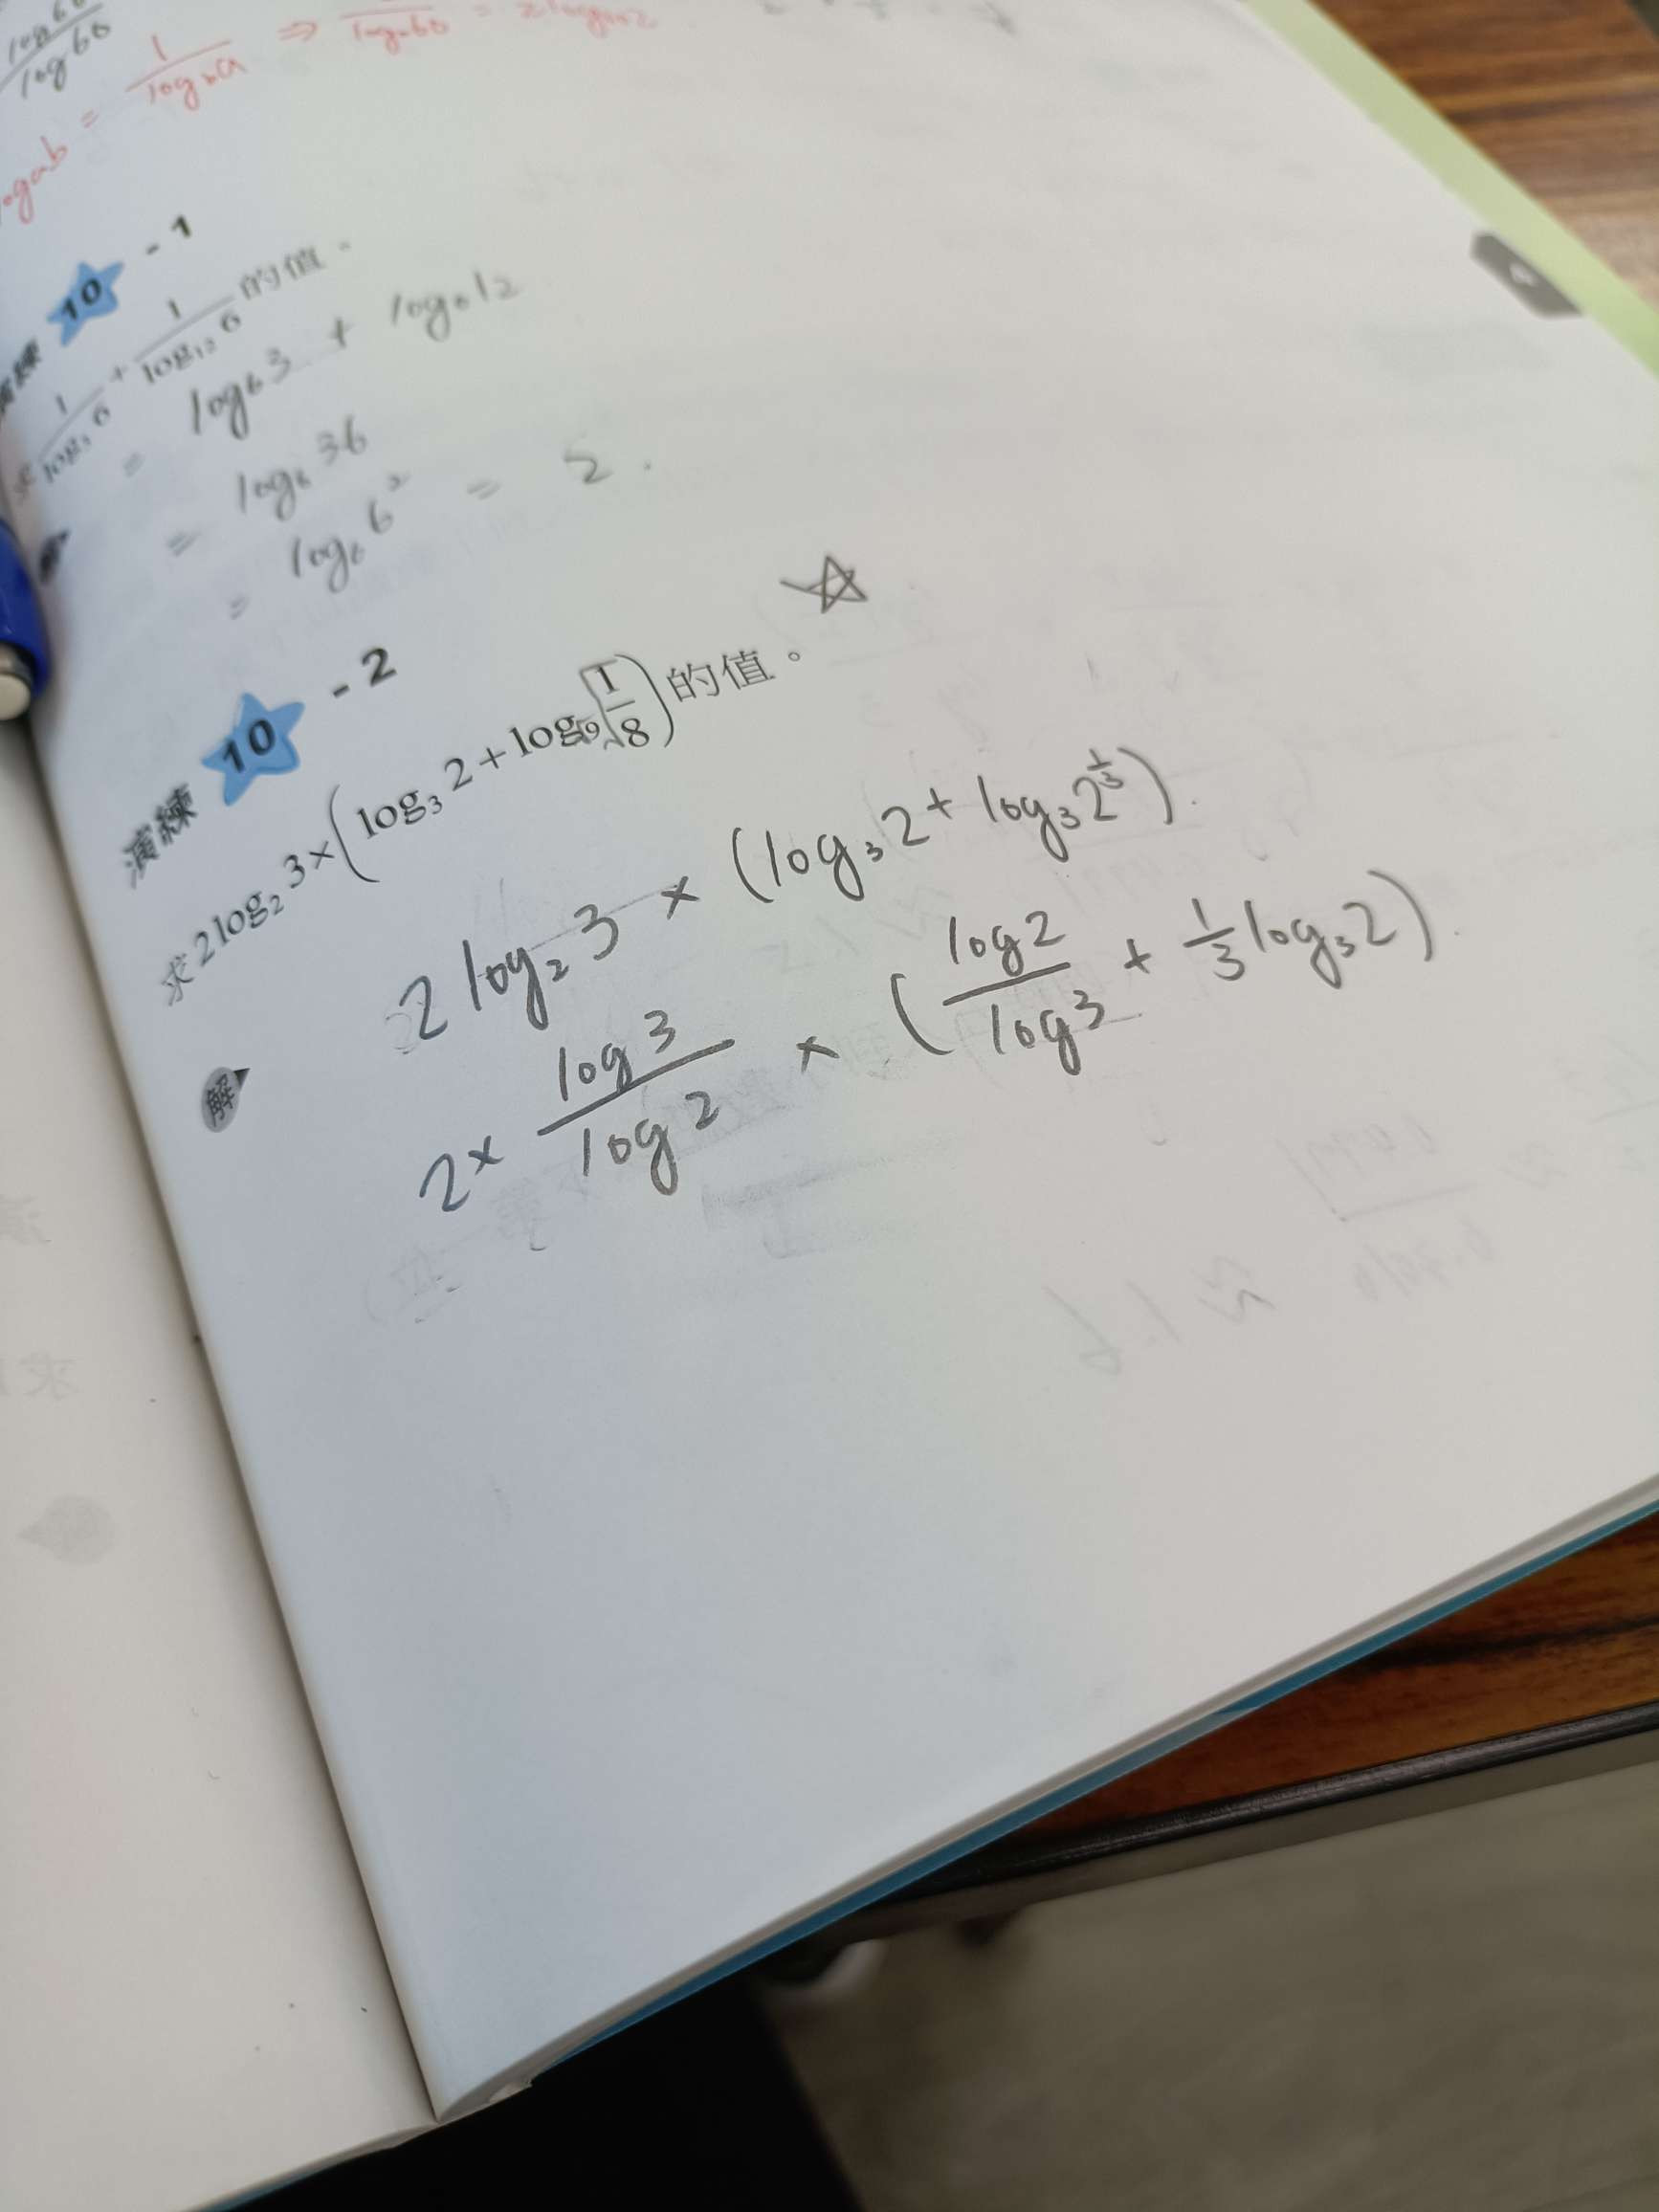 log 60
= 1/log_b a ⇒
演練 10 - 1
求 1/log₃ 6 + 1/log₁₂ 6 的值。
= log₆ 3 + log₆ 12
= log₆ 36
= log₆ 6² = 2.
演練 10 - 2
求 2 log₂ 3 × (log₃ 2 + log₉ 1/8) 的值。
解
2 log₂ 3 × (log₃ 2 + log₃ 2^(1/3)).
2 × log 3/log 2 × (log 2/log 3 + 1/3 log₃ 2).